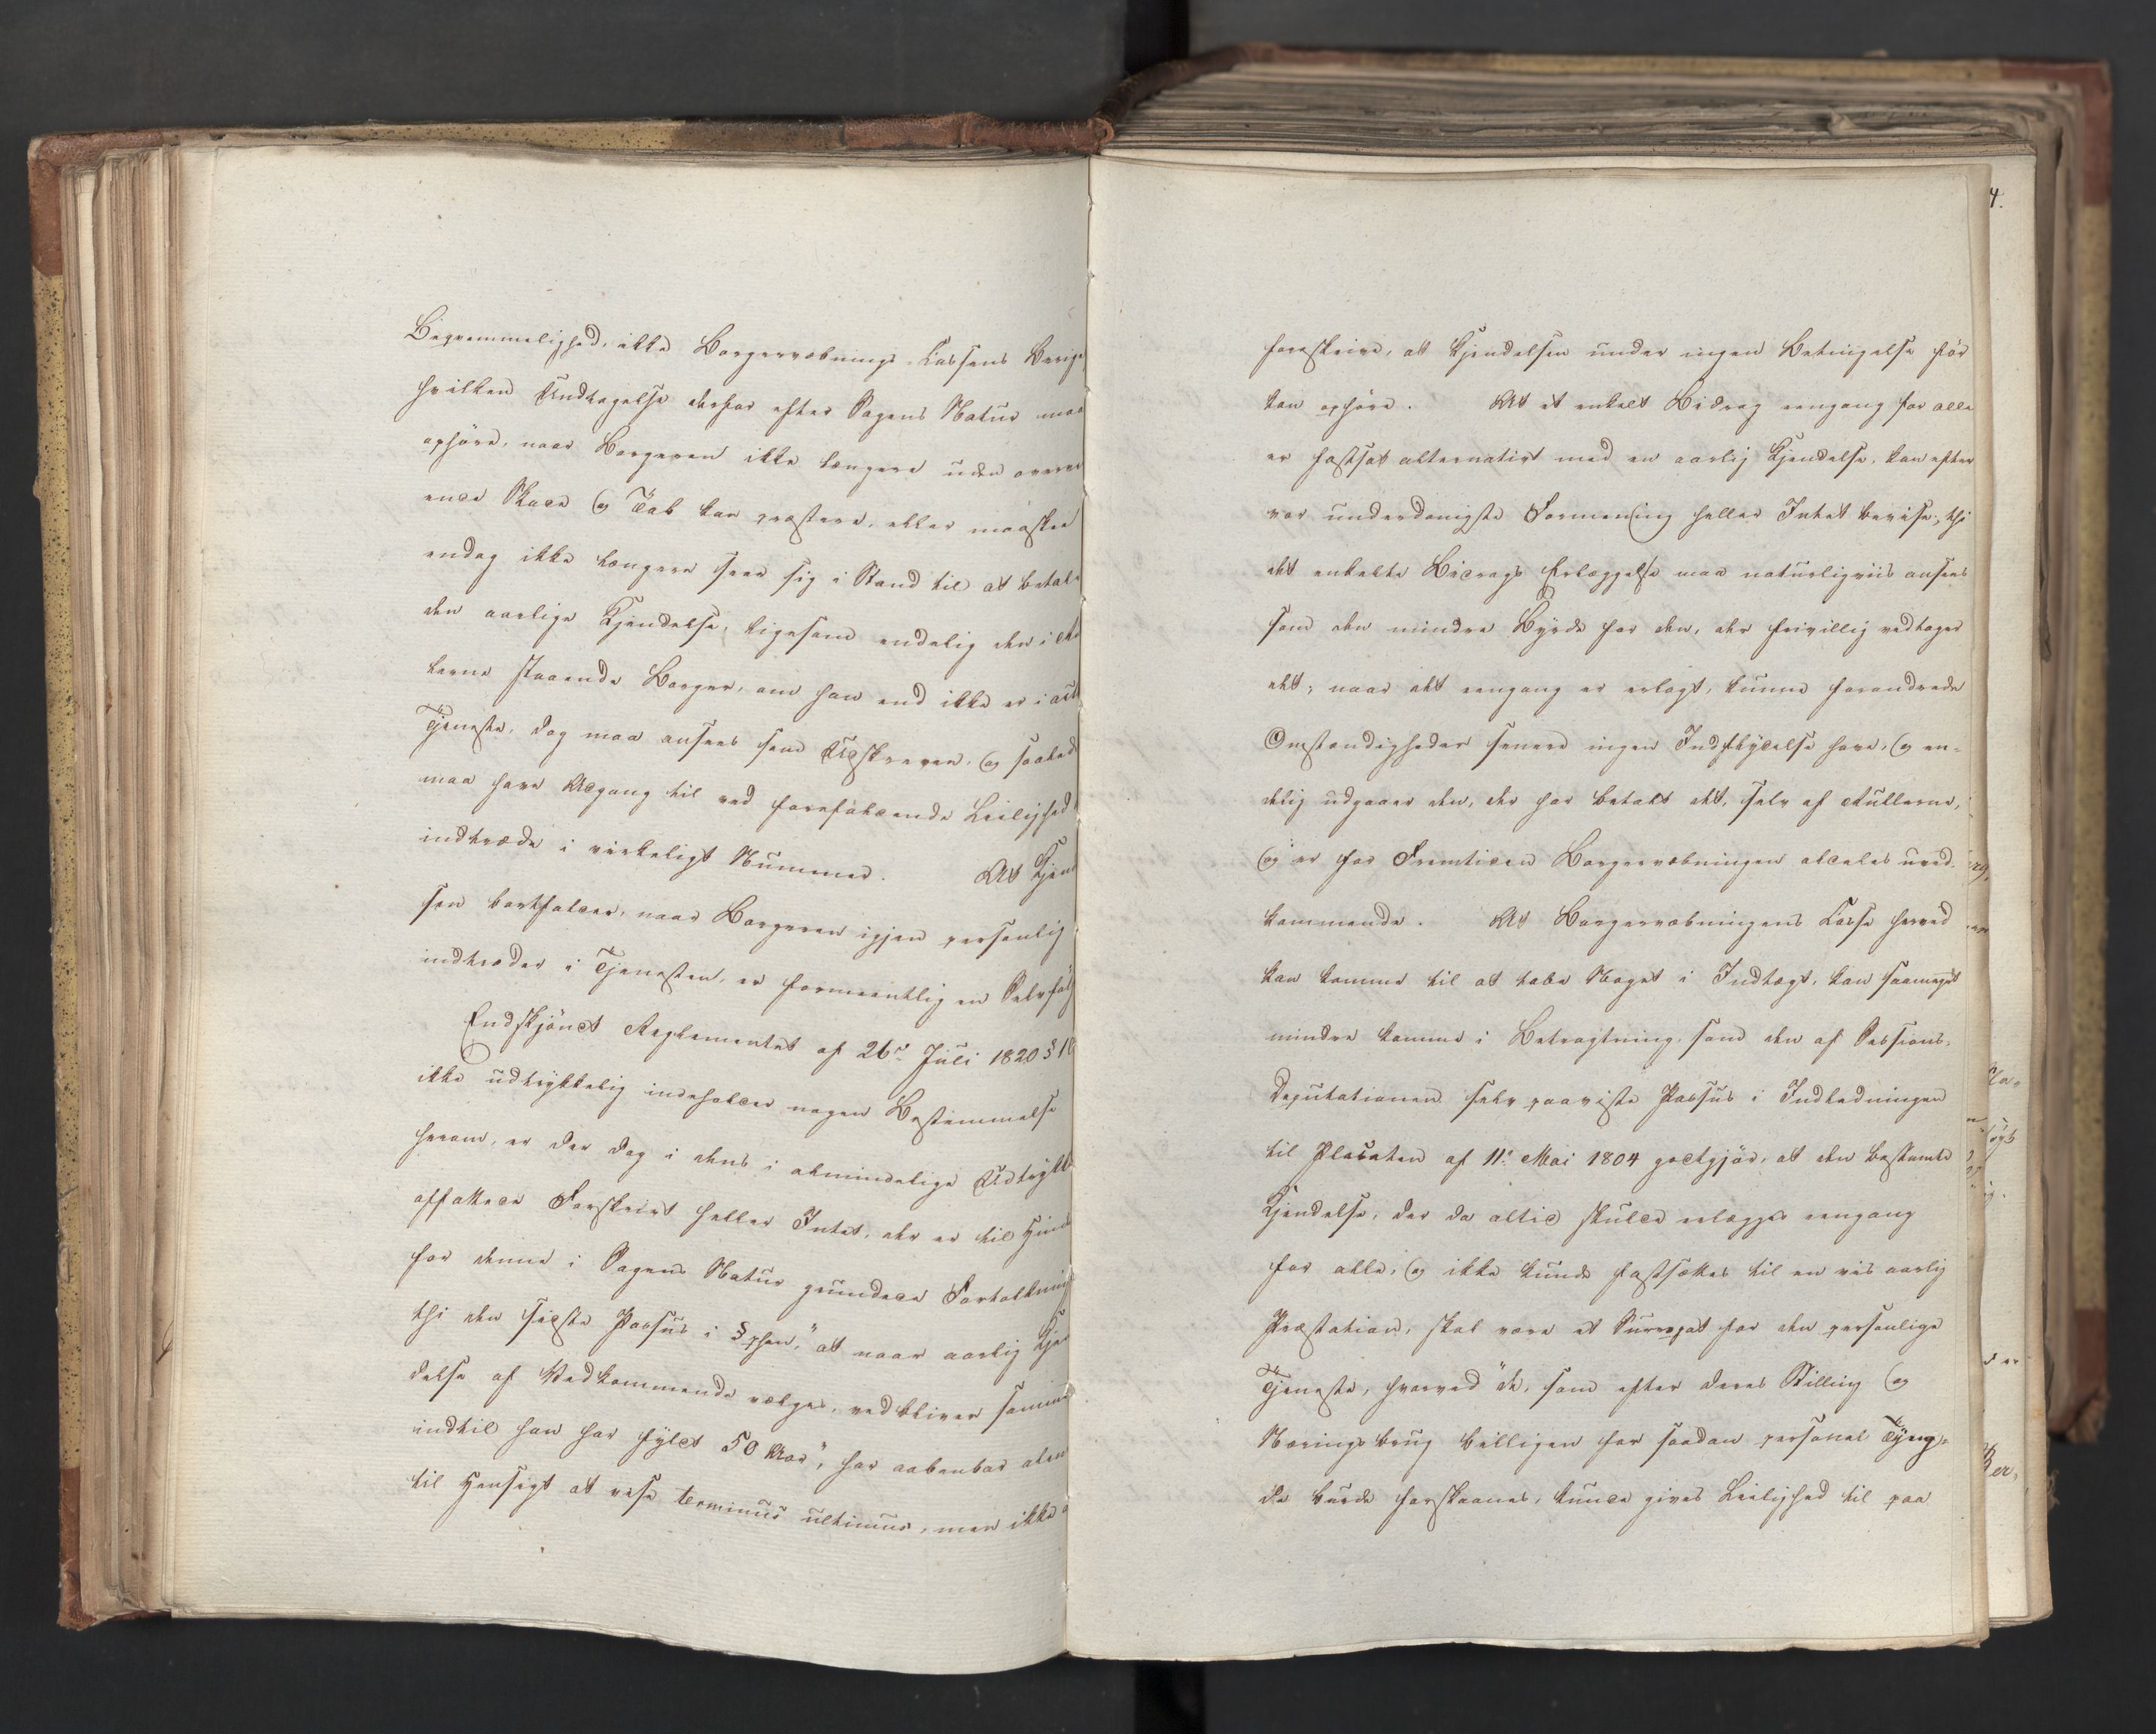 Beqvemmelighed, ikke Borgervæbnings-Cassens Berige
hvilken Undtagelse derfor efter Sagens Natur maa
ophöre, naar Borgeren ikke længere uden overve
ende Skade og Tab kan præstere, eller maaskee
endog ikke længere seer sig i Stand til at betale
den aarlige Kjendelse, ligesom endelig den i
lerne staaende Borger, om han end ikke er i act
Tjeneste, dog maa ansees som Udskreven, og saaled
maa have Adgang til ved forefaldende Leilighed
indtræde i virkeligt Nummer. At Kjend
sen bortfalder, naar Borgeren igjen personlig
indtræder i Tjenesten, er formeentlig en Selvföl
Endskjöndt Reglementet af 26de Juli 1820 § 10
ikke udtrykkelig indeholder nogen Bestemmelse
herom, er der dog i dens i almindelige Udtrykk
affattede Forskrivt heller Intet, der er til Hind
for denne i Sagens Natur grundede Fortolkning
thi den sidste Passus i §phen, "at naar aarlig Kjen
delse af Vedkommende vælges, vedbliver samme
indtil han har fyldt 50 Aar", har aabenbar alene
til Hensigt at vise terminus ultimus, men ikke
foreskrive, at Kjendelsen under ingen Betingelse för
kan ophöre. At et enkelt Bidrag eengang for alle
er fastsat alternativt med en aarlig Kjendelse, kan efter
vor underdanigste Formening heller Intet bevise; thi
det enkelte Bidrags Erlæggelse maa naturligviis ansees
som den mindre Byrde for den, der frivillig vedtager
det; naar det eengang er erlagt, kunne forandrede
Omstændigheder senere ingen Indflydelse have, og en-
delig udgaaer den, der har betalt det, selv af Rullerne,
og er for Fremtiden Borgervæbningen aldeles uved-
kommende. At Borgervæbningens Casse herved
kan komme til at tabe Noget i Indtægt, kan saameget
mindre komme i Betragtning som den af Sessions-
Deputationen selv paaviste Passus i Indledningen
til Placaten af 11te Mai 1804 godtgjör, at den bestemte
Kjendelse, der da altid skulde erlægges eengang
for alle, og ikke kunde fastsættes til en vis aarlig
Præstation, skal være et Surrogat for den personlige
Tjeneste, hvorved "de, som efter deres Stilling og
Næringsbrug billigen for saadan personel Tyng-
de burde forskaanes, kunde gives Leilighed til paa